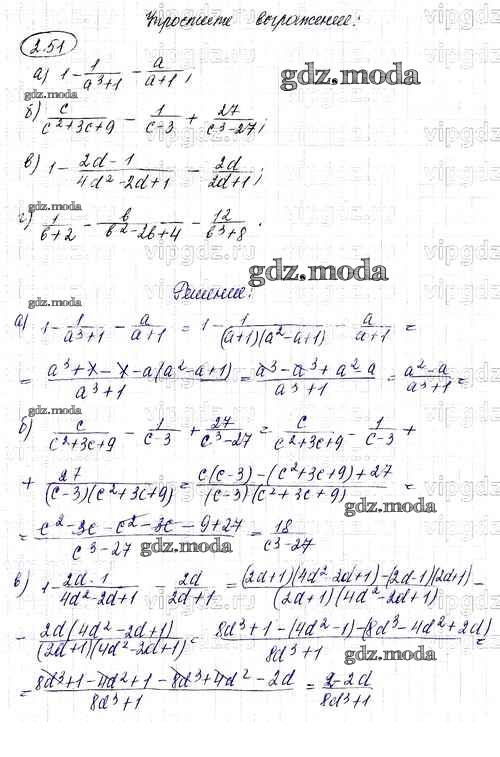 Упростите выражение:
2.51
а) 1 - 1/(a³+1) - a/(a+1);
б) c/(c²+3c+9) - 1/(c-3) + 27/(c³-27);
в) 1 - (2d-1)/(4d²-2d+1) - 2d/(2d+1);
г) 1/(b+2) - b/(b²-2b+4) - 12/(b³+8).
gdz.moda
Решение:
а) 1 - 1/(a³+1) - a/(a+1) = 1 - 1/((a+1)(a²-a+1)) - a/(a+1) =
= (a³+1-1-a(a²-a+1))/(a³+1) = (a³-a³+a²-a)/(a³+1) = (a²-a)/(a³+1) =
б) c/(c²+3c+9) - 1/(c-3) + 27/(c³-27) = c/(c²+3c+9) - 1/(c-3) +
+ 27/((c-3)(c²+3c+9)) = (c(c-3)-(c²+3c+9)+27)/((c-3)(c²+3c+9)) =
= (c²-3c-c²-3c-9+27)/(c³-27) = 18/(c³-27)
в) 1 - (2d-1)/(4d²-2d+1) - 2d/(2d+1) = ((2d+1)(4d²-2d+1)-(2d-1)(2d+1))/((2d+1)(4d²-2d+1)) -
- 2d(4d²-2d+1)/((2d+1)(4d²-2d+1)) = (8d³+1-(4d²-1)-(8d³-4d²+2d))/(8d³+1) =
= (8d³+1-4d²+1-8d³+4d²-2d)/(8d³+1) = (2-2d)/(8d³+1)